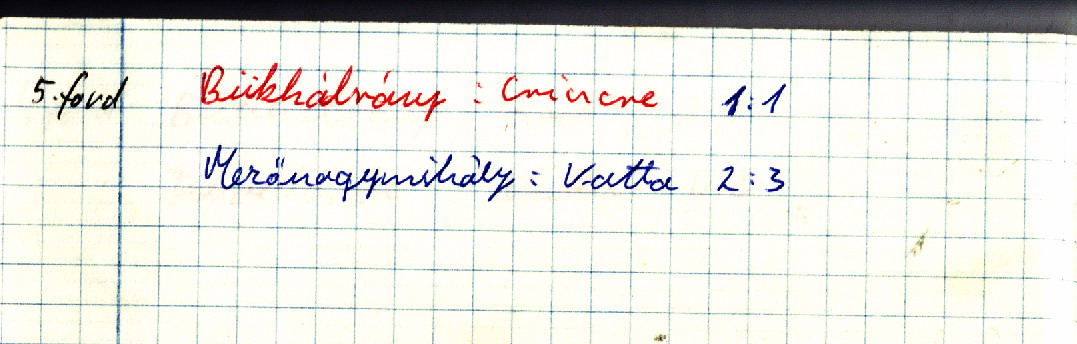 5. ford Bükkábrány : Csincse 1:1
Mezőnagymihály : Vatta 2:3